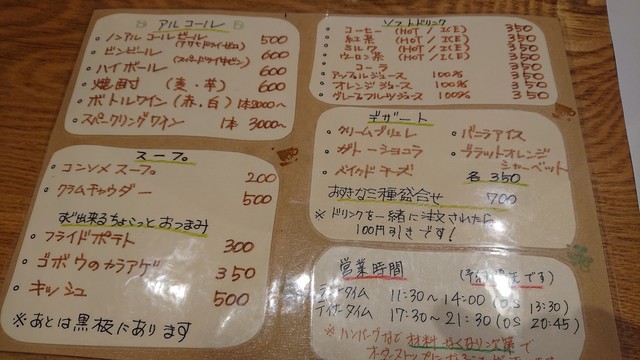 アルコール
ノンアルコールビール (アサヒドライゼロ) 500
ビンビール (スーパードライ中ビン) 600
ハイボール 600
焼酎 (麦・芋) 600
ボトルワイン (赤、白) 1本2000〜
スパークリングワイン 1本 3000〜
スープ
コンソメスープ 200
クラムチャウダー 500
すぐ出来るちょこっとおつまみ
フライドポテト 300
ゴボウのカラアゲ 350
キッシュ 500
※あとは黒板にあります
ソフトドリンク
コーヒー (HOT / ICE) 350
紅茶 (HOT / ICE) 350
ミルク (HOT / ICE) 350
ウーロン茶 (HOT / ICE) 350
コーラ 350
アップルジュース 100% 350
オレンジジュース 100% 350
グレープフルーツジュース 100% 350
デザート
・クリームブリュレ ・バニラアイス
・ガトーショコラ ・ブラッドオレンジ
シャーベット
・ベイクドチーズ 各 350
お好きな三種盛合せ 700
※ドリンクを一緒に注文されたら
100円引きです!
営業時間 (予約優先です)
ランチタイム 11:30〜14:00 (OS 13:30)
ディナータイム 17:30〜21:30 (OS 20:45)
※ハンバーグなど材料なくなり次第で